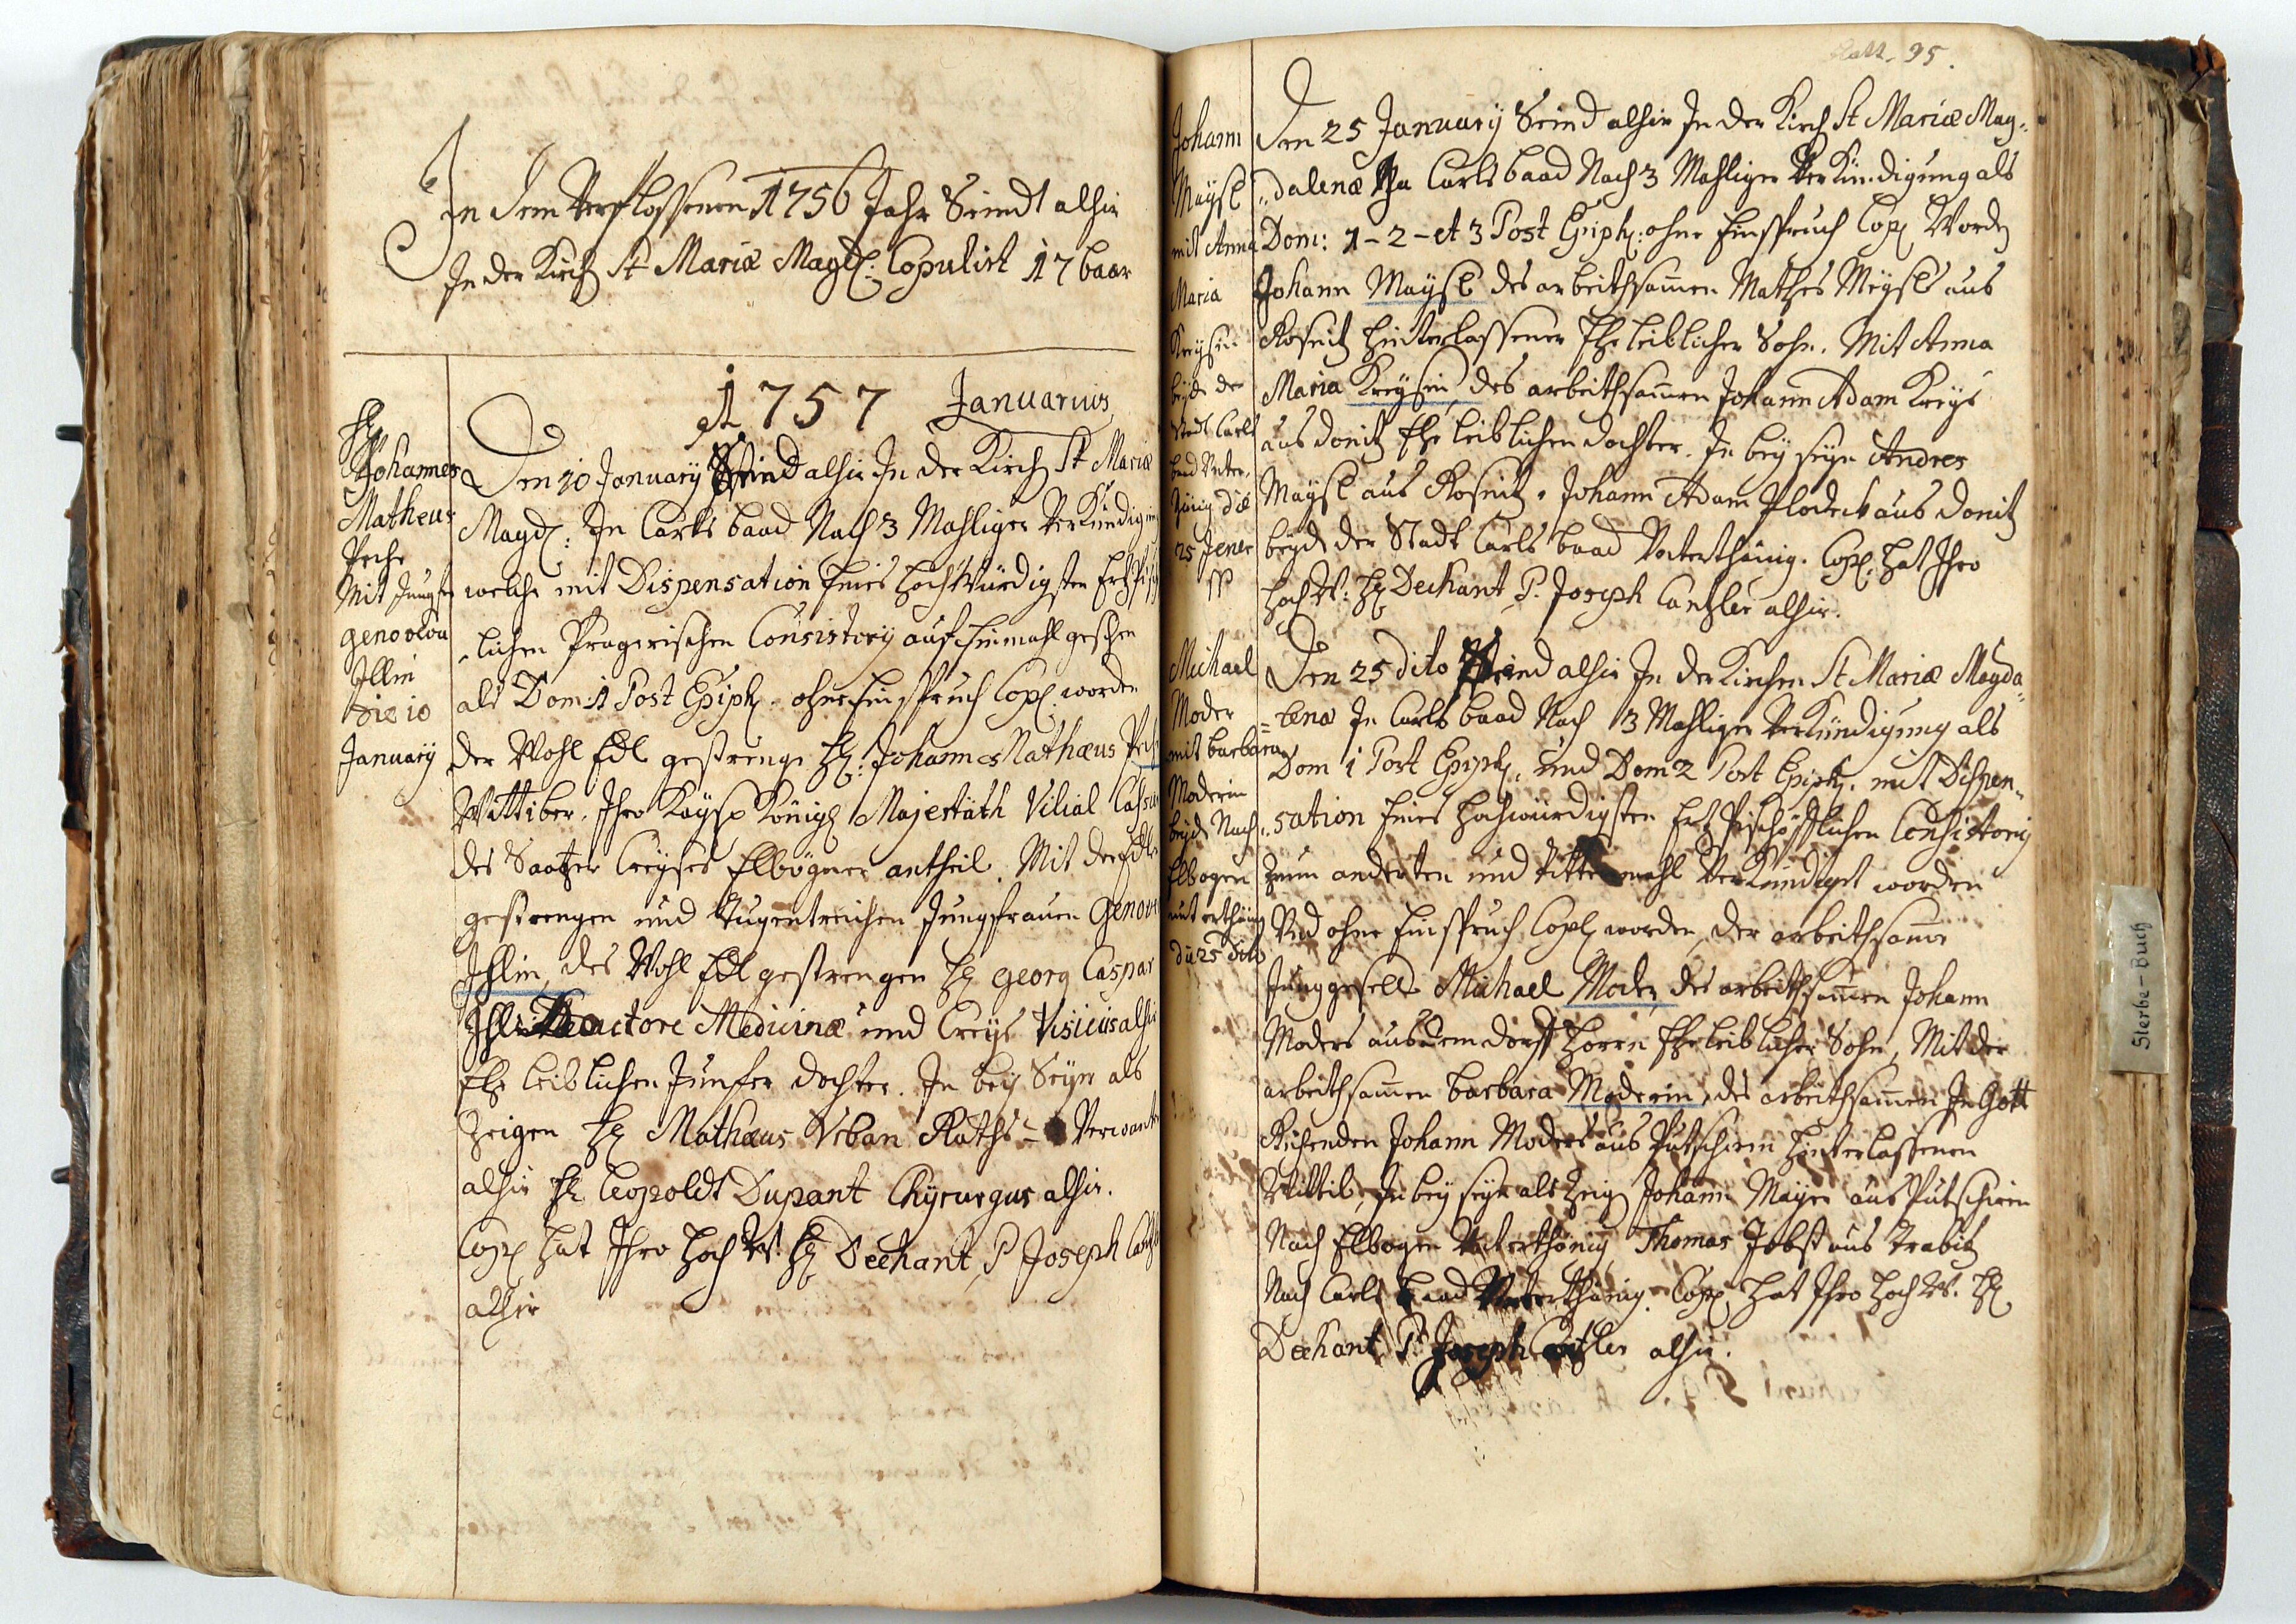 In dem Verflossenen 1756 Jahr Seindt alhir
In der Kirch St Mariæ Magd: Copulirt 17 baar
1757 Januarius
H
Johannes
Matheus
Peche
Mit Jungfr
genoveva
Illin
die 10
January
Den 10 January Seind alhir In der Kirch St Mariæ
Magd: In Carls baad Nach 3 Mahliger Verkündigung
welche mit Dispensation Eines Hochwürdigsten Ertzbisch
lichen Pragerischen Consistorÿ auf Einmahl geschehen
als Dom: 1 Post Epiph: ohne Einspruch Cop: worden
der Wohl Edl gestrenge H: Johannes Mathæus Pech
Wittiber. Ihro Kaÿs: Königl Majestäth Vilial Cassa
des Saatzer Creÿses Elbögner antheil. Mit der Edl
gestrengen und Tugentreichen Jungfrauen Genov
Ihlin des Wohl Edl gestrengen H georg Caspar
Ihl Doctore Medicinæ und Creÿs Visicus alhir
Ehe leiblichen Junfer dochter. In beÿ Seÿn als
Zeigen H Mathæus Urban Raths = Verwanter
alhir H Leopoldt Dupant Chÿrurgus alhir.
Cop: hat Ihro Hoch W: H Dechant P Joseph Cantzl
alhir
Blatt. 95.
Johann
Maÿsl
mit Anna
Maria
Kreÿsin
beÿde der
Stadt Carls
baad Unter
thänig diē
25 Jener
Den 25 January Seind alhir In der Kirch St Mariæ Mag„
„dalenæ Zu Carls baad Nach 3 Mahliger Verkündigung als
Dom: 1 - 2 - et 3 Post Epiph: ohne Einspruch Cop: Worden
Johann Maÿsl des arbeithsam̄en Mathes Meÿsl aus
Rosnitz hinterlassener Ehe leiblicher Sohn. Mit Anna
Maria Kreÿsin, des arbeithsam̄en Johann Adam Kreÿs
aus donitz Ehe leiblichen dochter. In beÿ seÿn Andres
Maÿsl aus Rosnitz. Johann Adam Plodeck aus donitz
beÿde der Stadt Carls baad Unterthänig. Cop: hat Ihro
Hoch W: H Dechant P. Joseph Cantzler alhir.
Michael
Moder
mit barbara
Moderin
beÿde Nach
Elbogen
unterthänig
diē 25 dito
Den 25 dito Seind alhir In der Kirchen St Mariæ Magda„
=lenæ In Carls baad Nach 3 Mahliger Verkündigung als
Dom 1 Post Epiph: und Dom 2 Post Epiph: mit Dispen„
„sation Eines Hochwürdigsten Ertz Bischöfflichen Consistorÿ
Zum anderten und Drittenmahl Verkündiget worden
Und ohne Einspruch Cop: worden, der arbeithsam̄e
Junggesell Michael Moder, des arbeithsam̄en Johann
Moders aus dem dorff Horn Ehe leiblicher Sohn, Mit der
arbeithsam̄en barbara Moderin, des arbeithsam̄en In Gott
Ruhenden Johann Moders aus Putschirn Hinterlassenen
Wittib, In beÿ seÿn als Zeigen Johann Maÿer aus Putschirn
Nach Elbogen Unterthänig Thomas Jobst aus Trabitz
Nach Carls baad Unterthänig. Cop: hat Ihro Hoch W. H
Dechant P. Joseph Cantzler alhir.
Sterbe-Buch